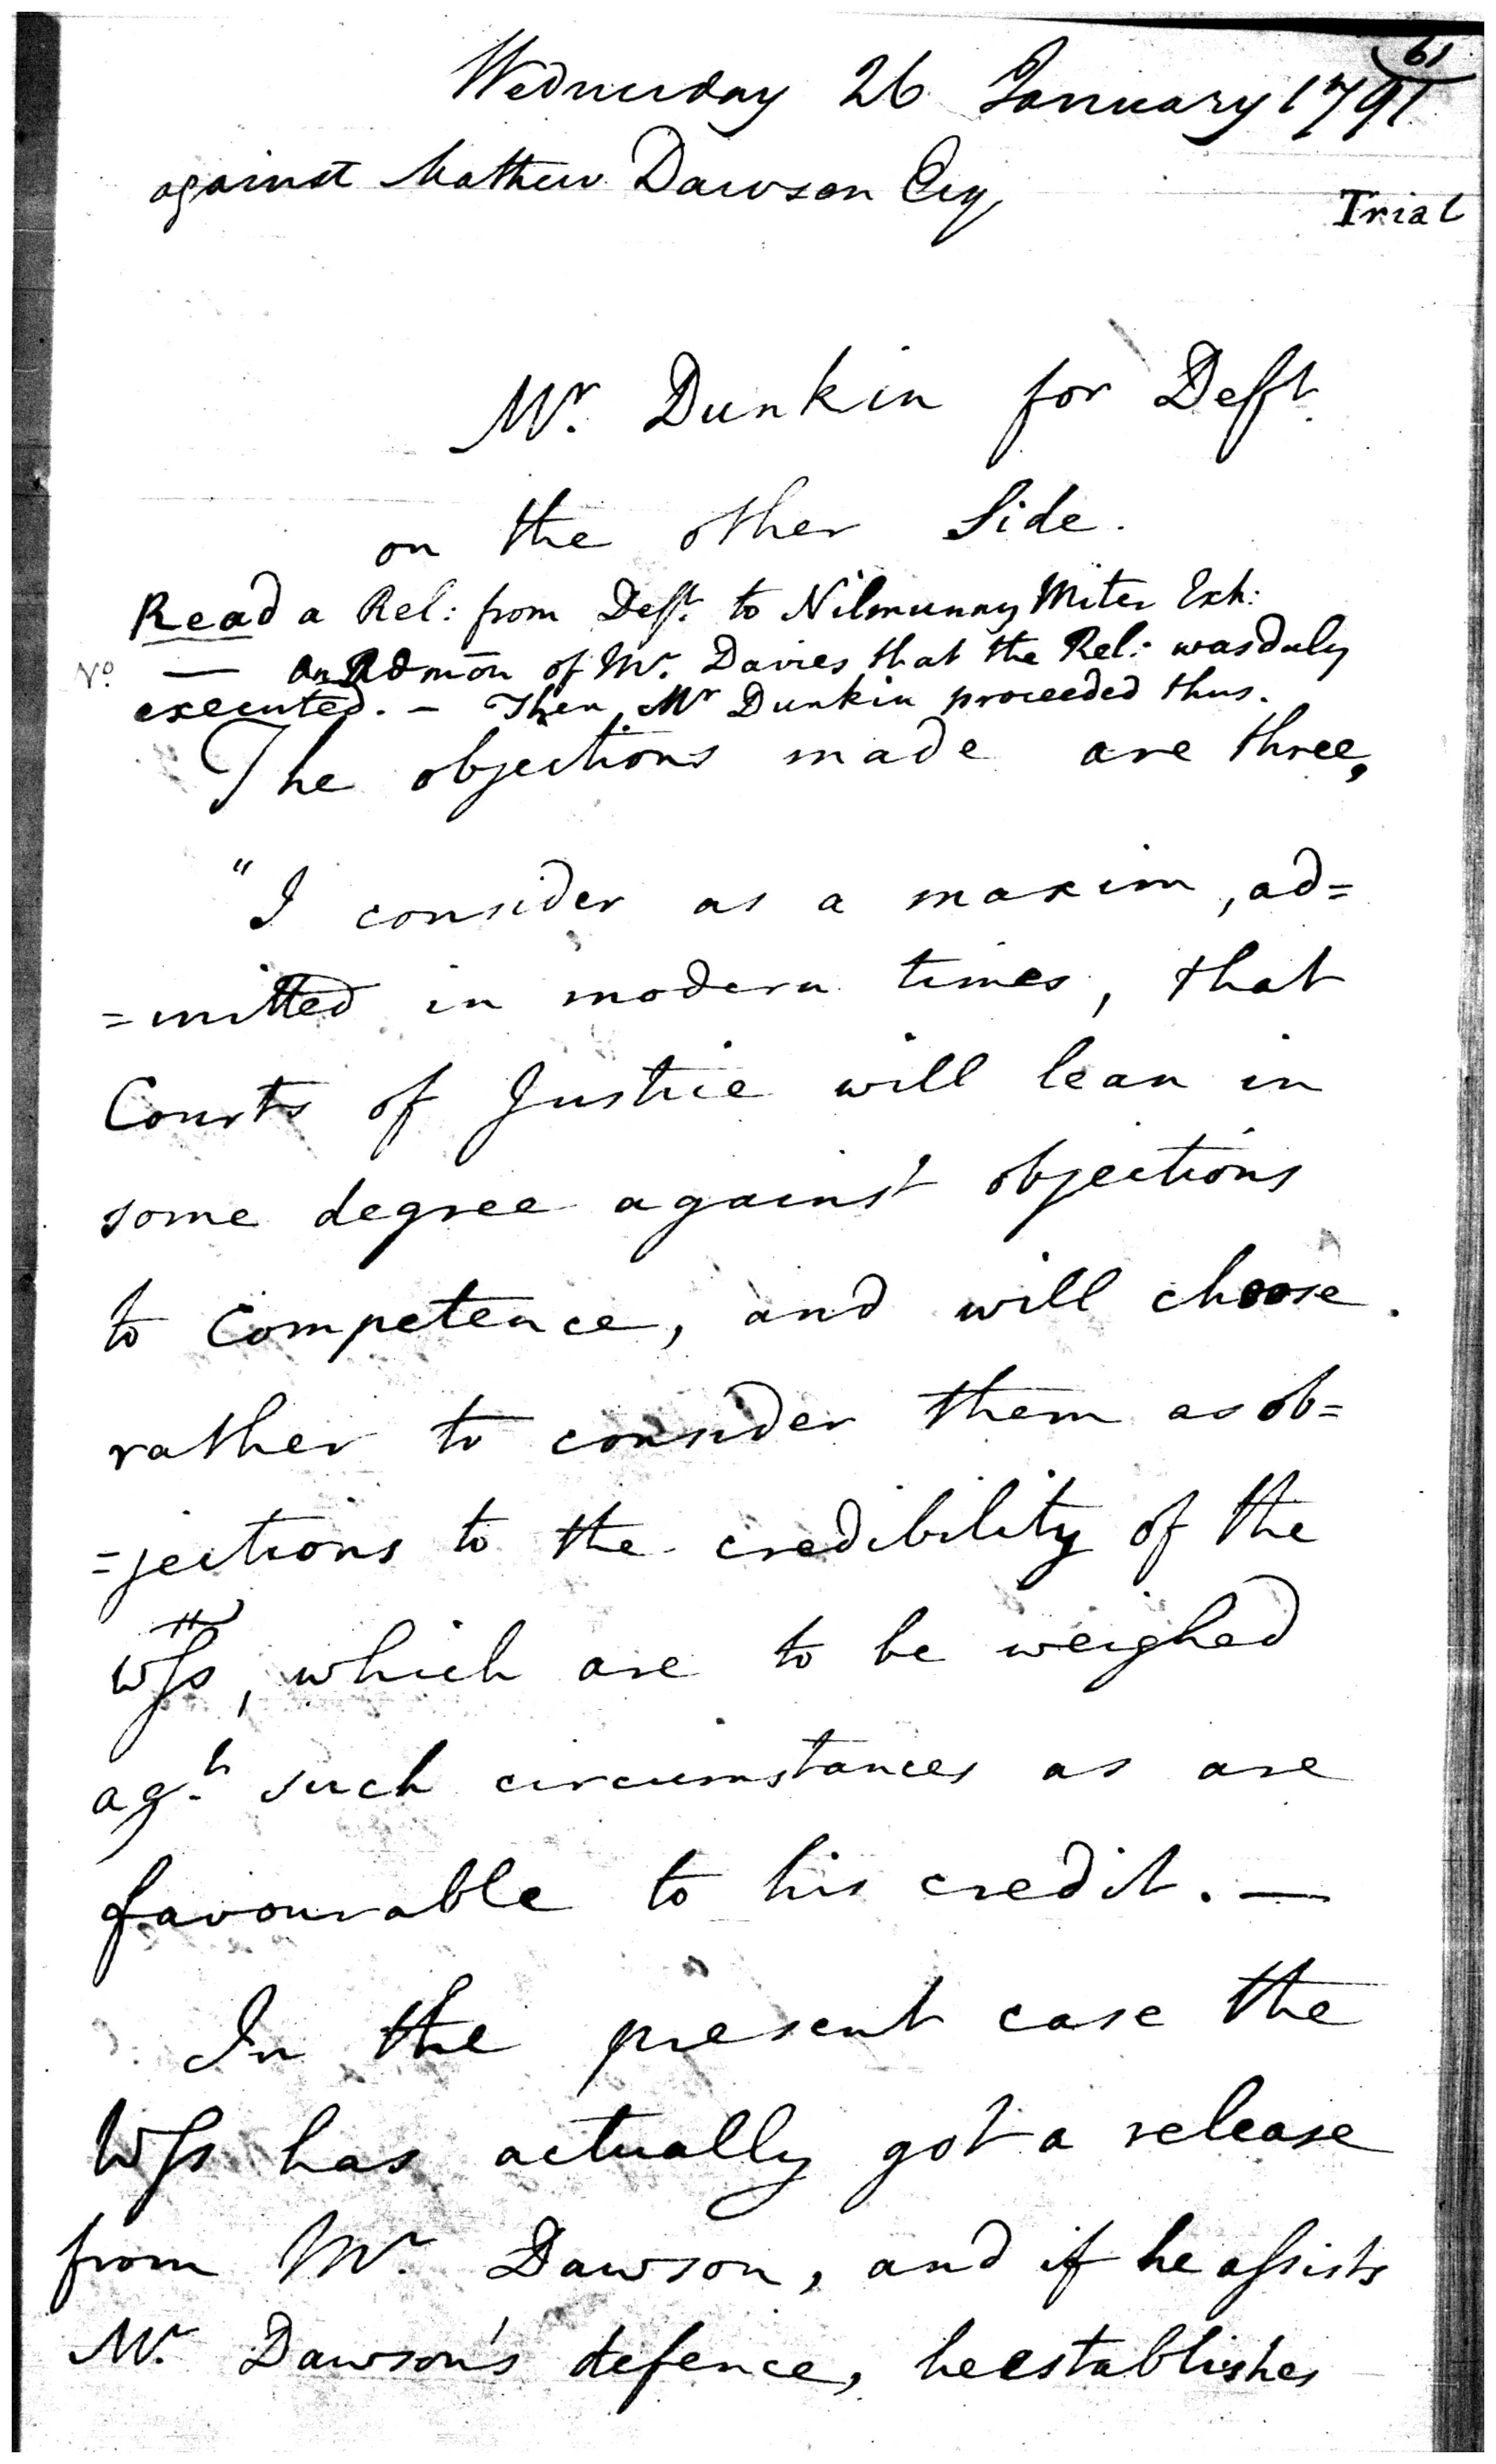 61
Wednesday 26 January 1791
against Mathew Dawson Esq
Trial
Mr. Dunkin for Deft.
on the other Side.
Read a Rel: from Deft. to Nilmunny Miter Exh:
No. — an Admōn of Mr. Davies that the Rel: was duly
executed. — Then, Mr Dunkin proceeded thus.
The objections made are three,
"I consider as a maxim, ad=
=mitted in modern times, that
Courts of Justice will lean in
some degree against objections
to Competence, and will choose
rather to consider them as ob=
=jections to the credibility of the
Wss, which are to be weighed
agt. such circumstances as are
favourable to his credit. —
In the present case the
Wss has actually got a release
from Mr. Dawson, and if he assists
Mr. Dawson's defence, he establishes